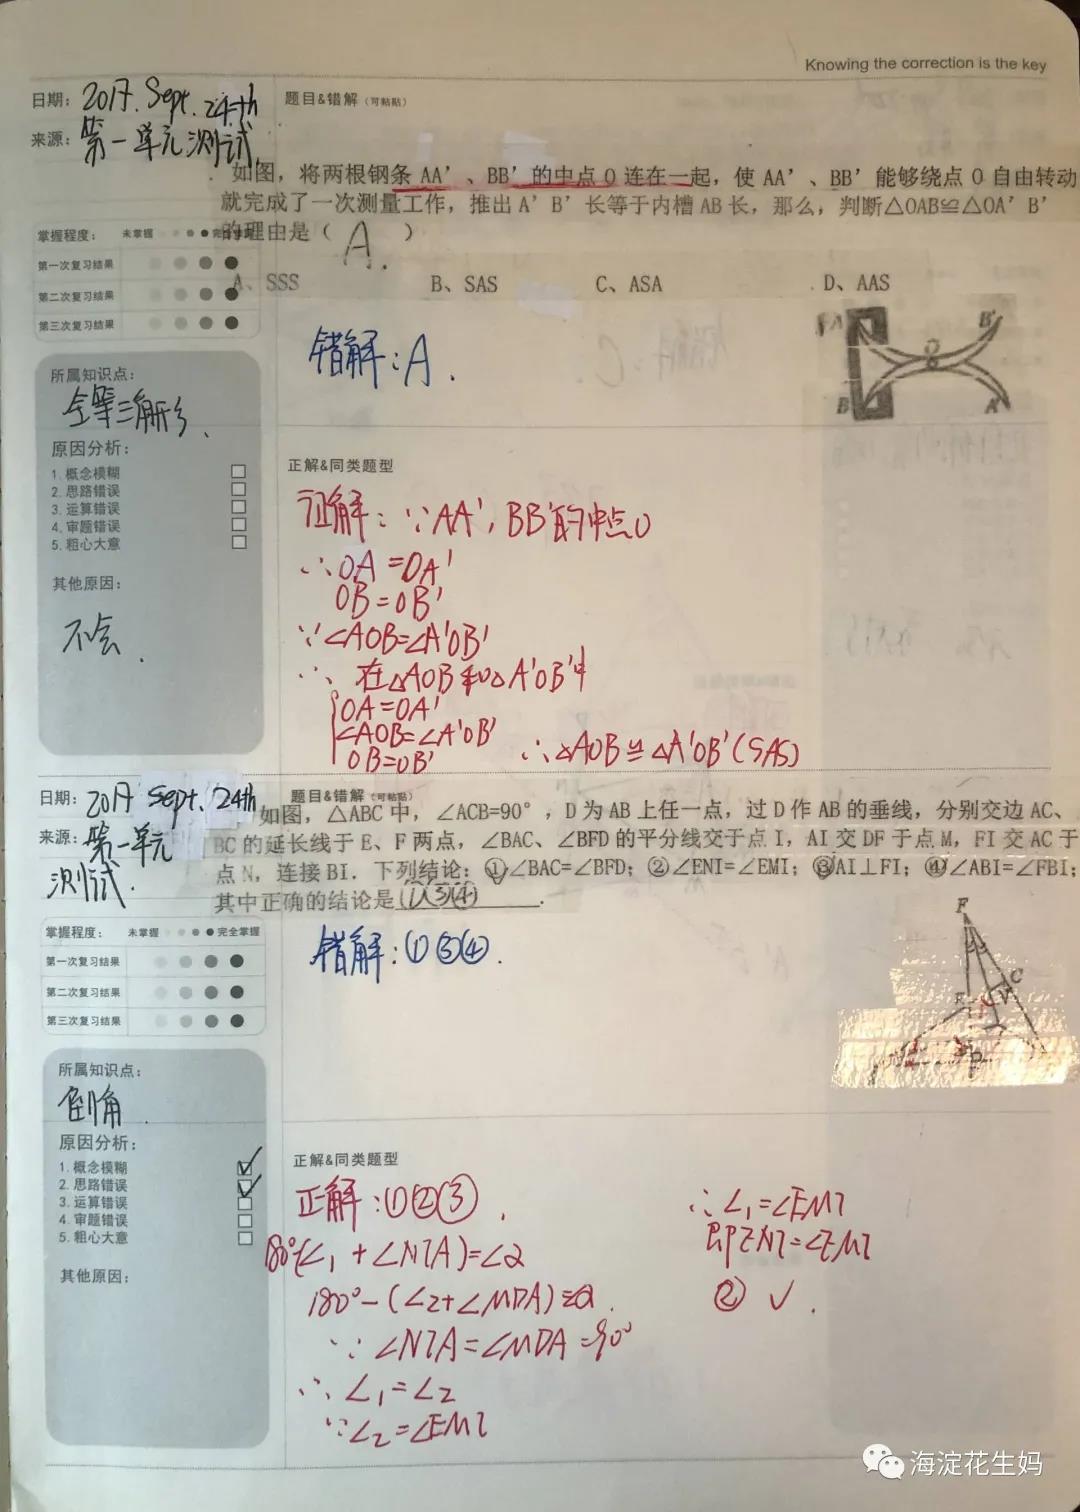 Knowing the correction is the key
日期: 2017. Sept. 24th
来源: 第一单元测试.
题目&错解 (可粘贴)
如图, 将两根钢条 AA'、BB' 的中点 O 连在一起, 使 AA'、BB' 能够绕点 O 自由转动
就完成了一次测量工作, 推出 A'B' 长等于内槽 AB 长, 那么, 判断△OAB≌△OA'B'
的理由是 ( A. )
A、SSS B、SAS C、ASA D、AAS
掌握程度: 未掌握 完全掌握
第一次复习结果
第二次复习结果
第三次复习结果
错解: A.
A B' O B A'
所属知识点:
全等三角形.
原因分析:
1.概念模糊
2.思路错误
3.运算错误
4.审题错误
5.粗心大意
其他原因:
不会.
正解&同类题型
证解: ∵AA', BB'的中点O
∴OA=OA'
OB=OB'
∵∠AOB=∠A'OB'
∴ 在△AOB和△A'OB'中
OA=OA'
∠AOB=∠A'OB'
OB=OB' ∴△AOB≌△A'OB'(SAS)
日期: 2017 Sept. 24th
来源: 第一单元
测试.
题目&错解 (可粘贴)
如图, △ABC 中, ∠ACB=90°, D 为 AB 上任一点, 过 D 作 AB 的垂线, 分别交边 AC、
BC 的延长线于 E、F 两点, ∠BAC、∠BFD 的平分线交于点 I, AI 交 DF 于点 M, FI 交 AC 于
点 N, 连接 BI. 下列结论: ①∠BAC=∠BFD; ②∠ENI=∠EMI; ③AI⊥FI; ④∠ABI=∠FBI;
其中正确的结论是 ①③④.
掌握程度: 未掌握 完全掌握
第一次复习结果
第二次复习结果
第三次复习结果
错解: ①③④.
F C
所属知识点:
倒角.
原因分析:
1.概念模糊
2.思路错误
3.运算错误
4.审题错误
5.粗心大意
其他原因:
正解&同类题型
正解: ①②③.
180°-(∠1+∠NIA)=∠2
∵∠NIA=∠MDA=90°
∴∠1=∠2
∵∠2=∠EMI
∴∠1=∠EMI
即∠ENI=∠EMI
② ✓.
海淀花生妈